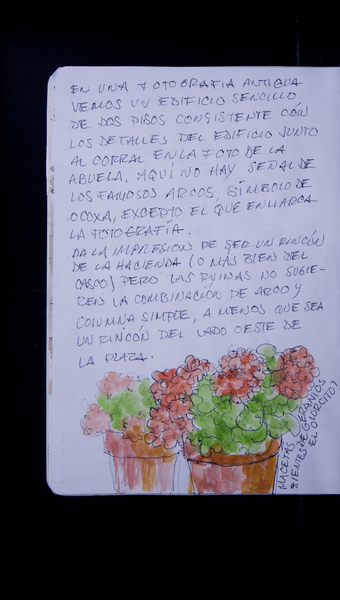 EN UNA FOTOGRAFIA ANTIGUA
VEMOS UN EDIFICIO SENCILLO
DE DOS PISOS CONSISTENTE CON
LOS DETALLES DEL EDIFICIO JUNTO
AL CORRAL EN LA FOTO DE LA
ABUELA. AQUÍ NO HAY SEÑAL DE
LOS FAMOSOS ARCOS, SÍMBOLO DE
OCOXA, EXCEPTO EL QUE ENMARCA
LA FOTOGRAFÍA.
DA LA IMPRESION DE SER UN RINCÓN
DE LA HACIENDA (O MÁS BIEN DEL
CASCO) PERO LAS RUINAS NO SUGIE-
REN LA COMBINACIÓN DE ARCO Y
COLUMNA SIMPLE, A MENOS QUE SEA
UN RINCÓN DEL LADO OESTE DE
LA PLAZA.
MACETAS GERANIOS
SIENTES DE EL OLORCITO?